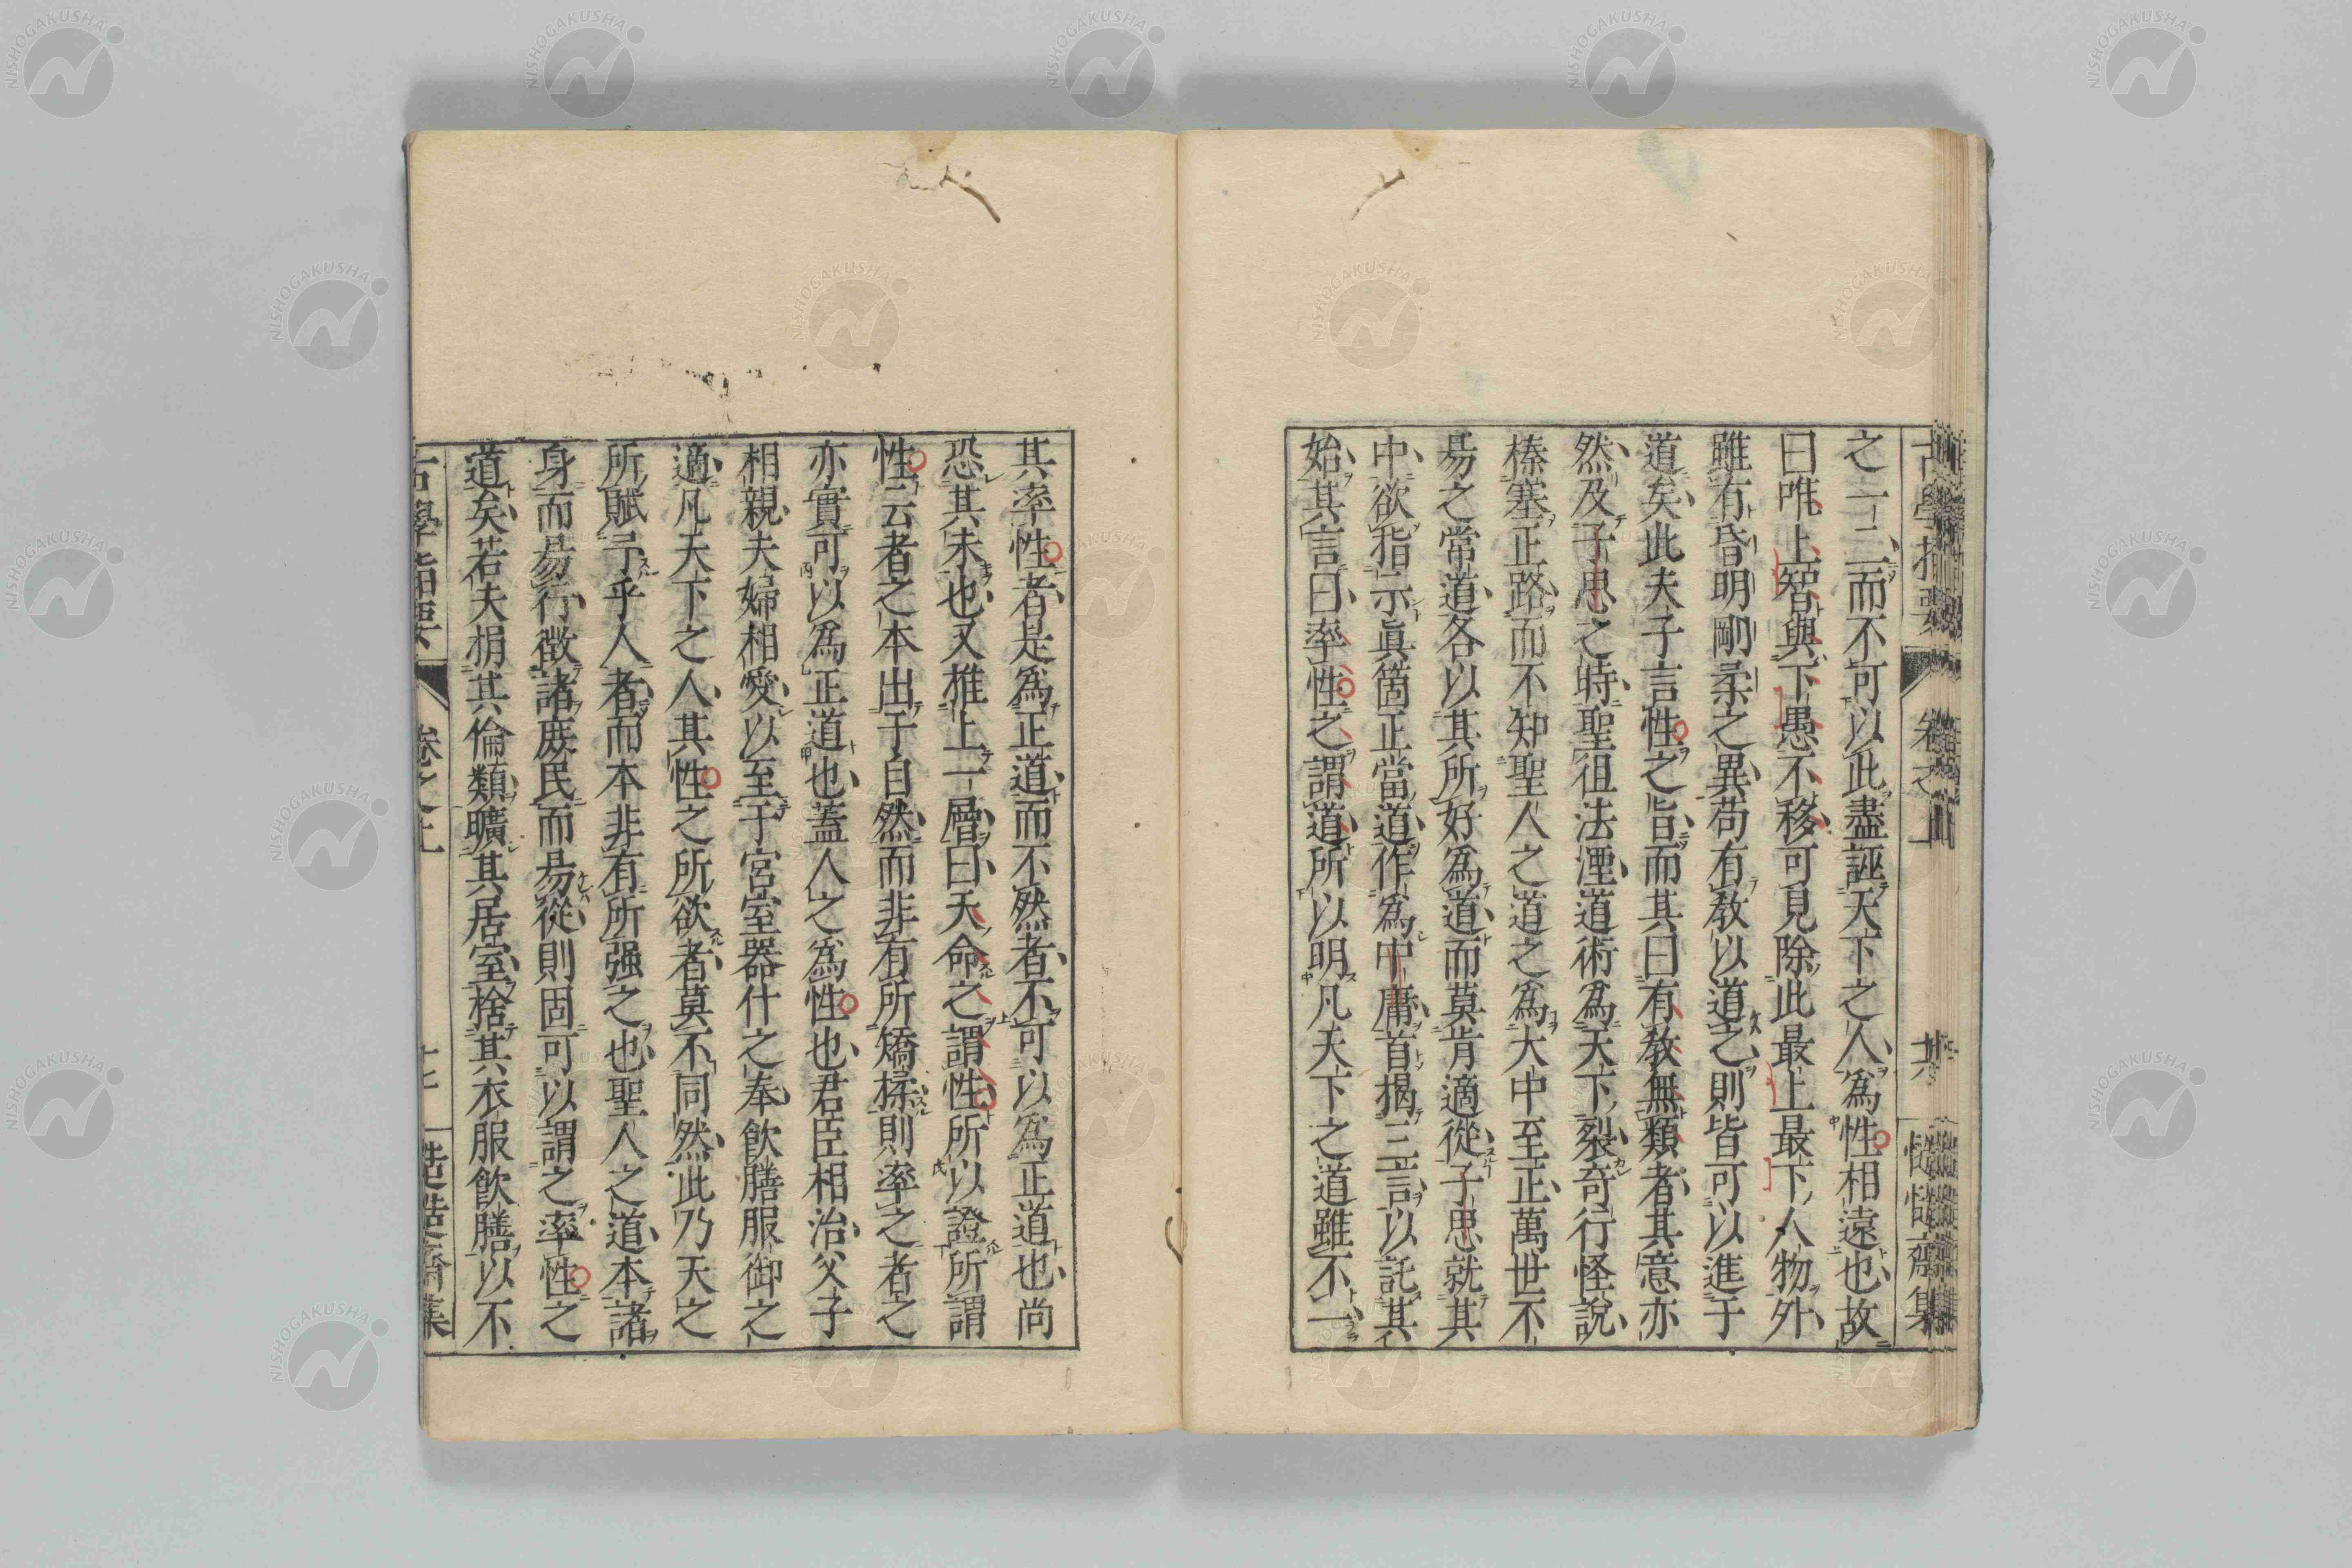 之一二而不可以此盡誣天下之人爲性相遠也故
曰唯上智與下愚不移可見除此最上最下人物外
雖有昏明剛柔之異苟有敎以道之則皆可以進于
道矣此夫子言性之旨而其曰有敎無類者其意亦
然及子思之時聖徂法湮道術爲天下裂奇行怪說
榛塞正路而不知聖人之道之爲大中至正萬世不
易之常道各以其所好爲道而莫肯適從子思就其
中欲指示眞箇正當道作爲中庸首揭三言以託其
始其言曰率性之謂道所以明凡天下之道雖不一
其率性者是爲正道而不然者不可以爲正道也尚
恐其未也又推上一層曰天命之謂性所以證所謂
性云者之本出于自然而非有所矯揉則率之者之
亦實可以爲正道也蓋人之爲性也君臣相治父子
相親夫婦相愛以至于宮室器什之奉飮膳服御之
適凡天下之人其性之所欲者莫不同然此乃天之
所賦予乎人者而本非有所强之也聖人之道本諸
身而易行徵諸庶民而易從則固可以謂之率性之
道矣若夫捐其倫類曠其居室捨其衣服飮膳以不
古學指要
卷之上